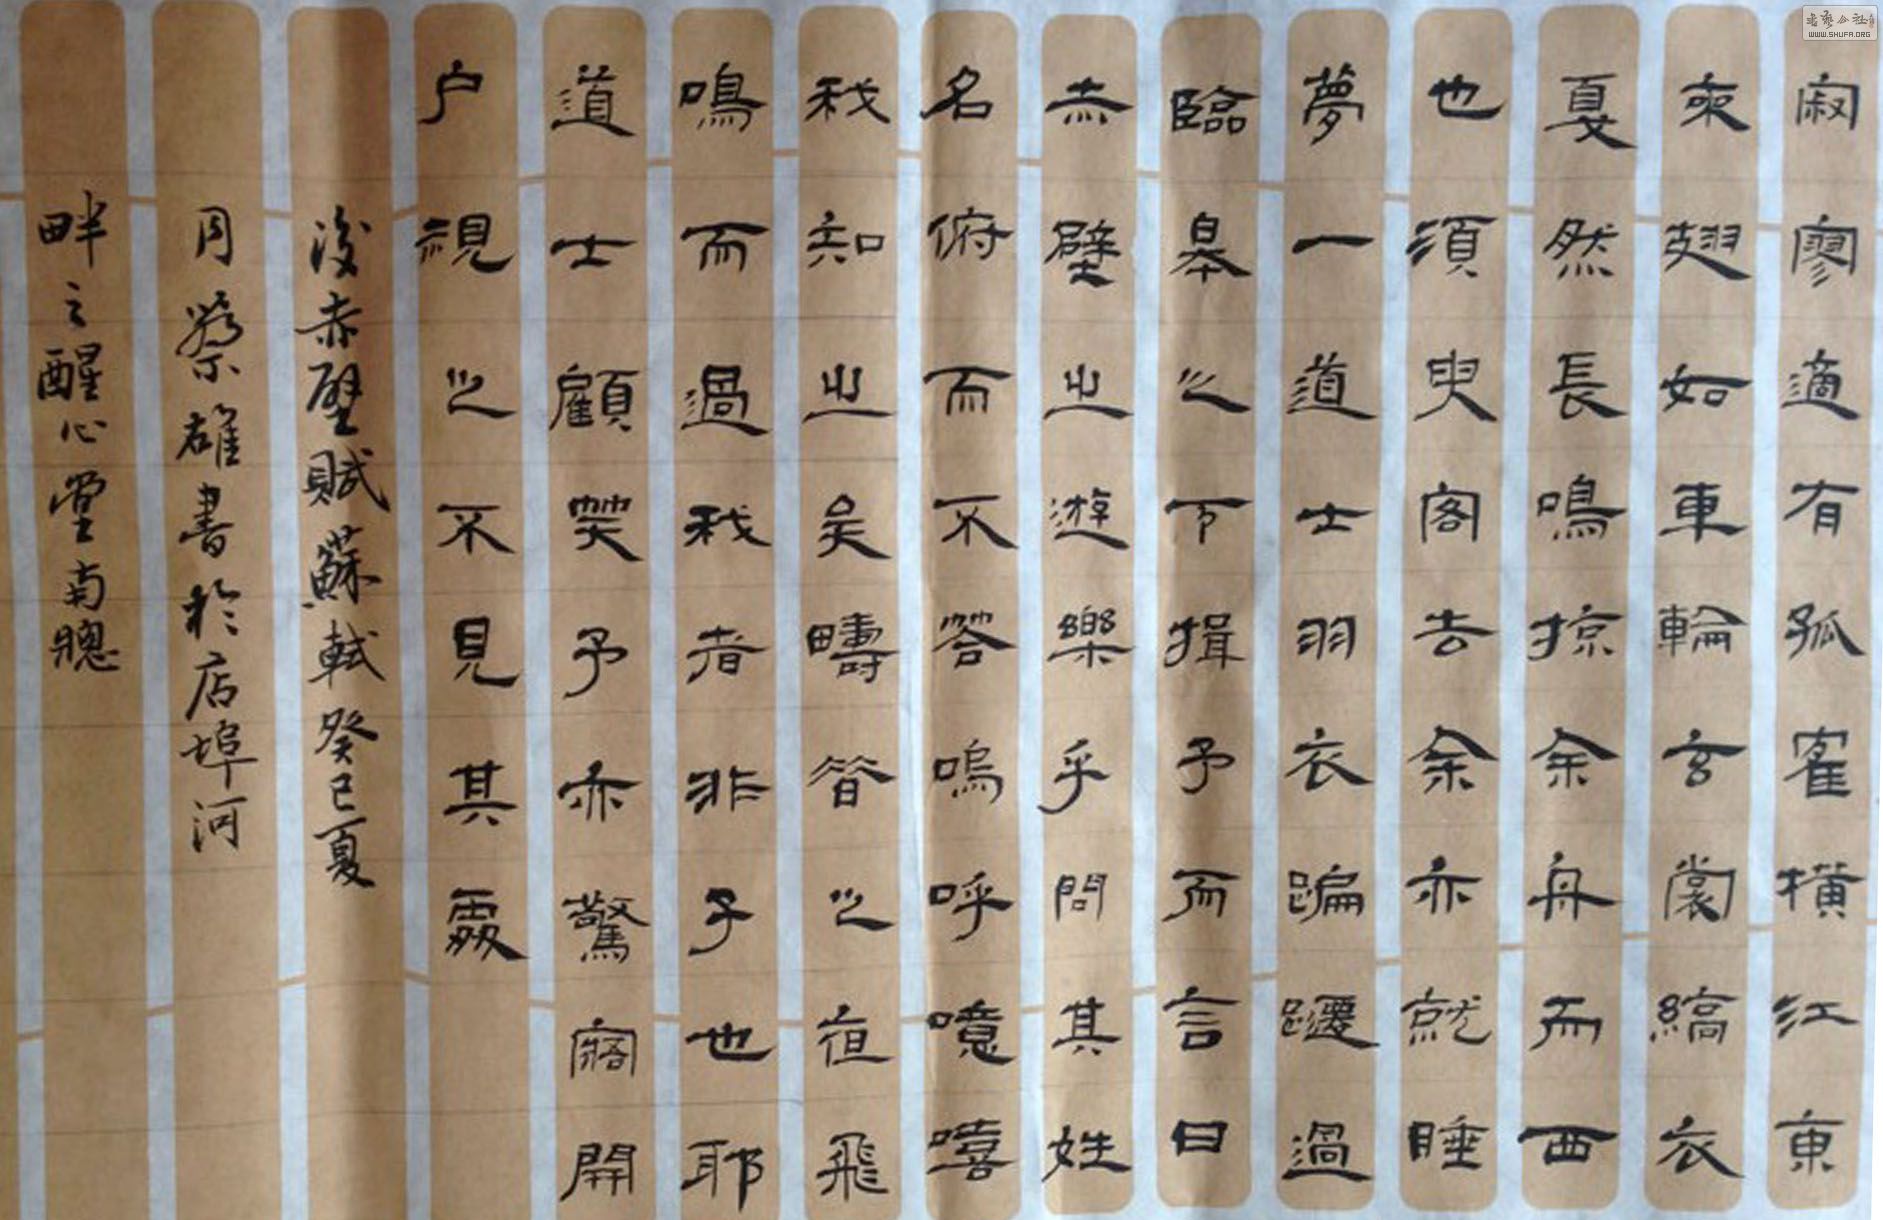 寂廖適有孤寉橫江東
來翅如車輪玄裳縞衣
戛然長鳴掠余舟而西
也須臾客去余亦就睡
夢一道士羽衣蹁躚過
臨皋之下揖予而言曰
赤壁之遊樂乎問其姓
名俯而不答嗚呼噫嘻
我知之矣疇昔之夜飛
鳴而過我者非子也耶
道士顧笑予亦驚寤開
户視之不見其處
後赤壁賦蘇軾癸巳夏
月蔡雄書於店埠河
畔之醒心堂南牕
WWW.SHUFA.ORG